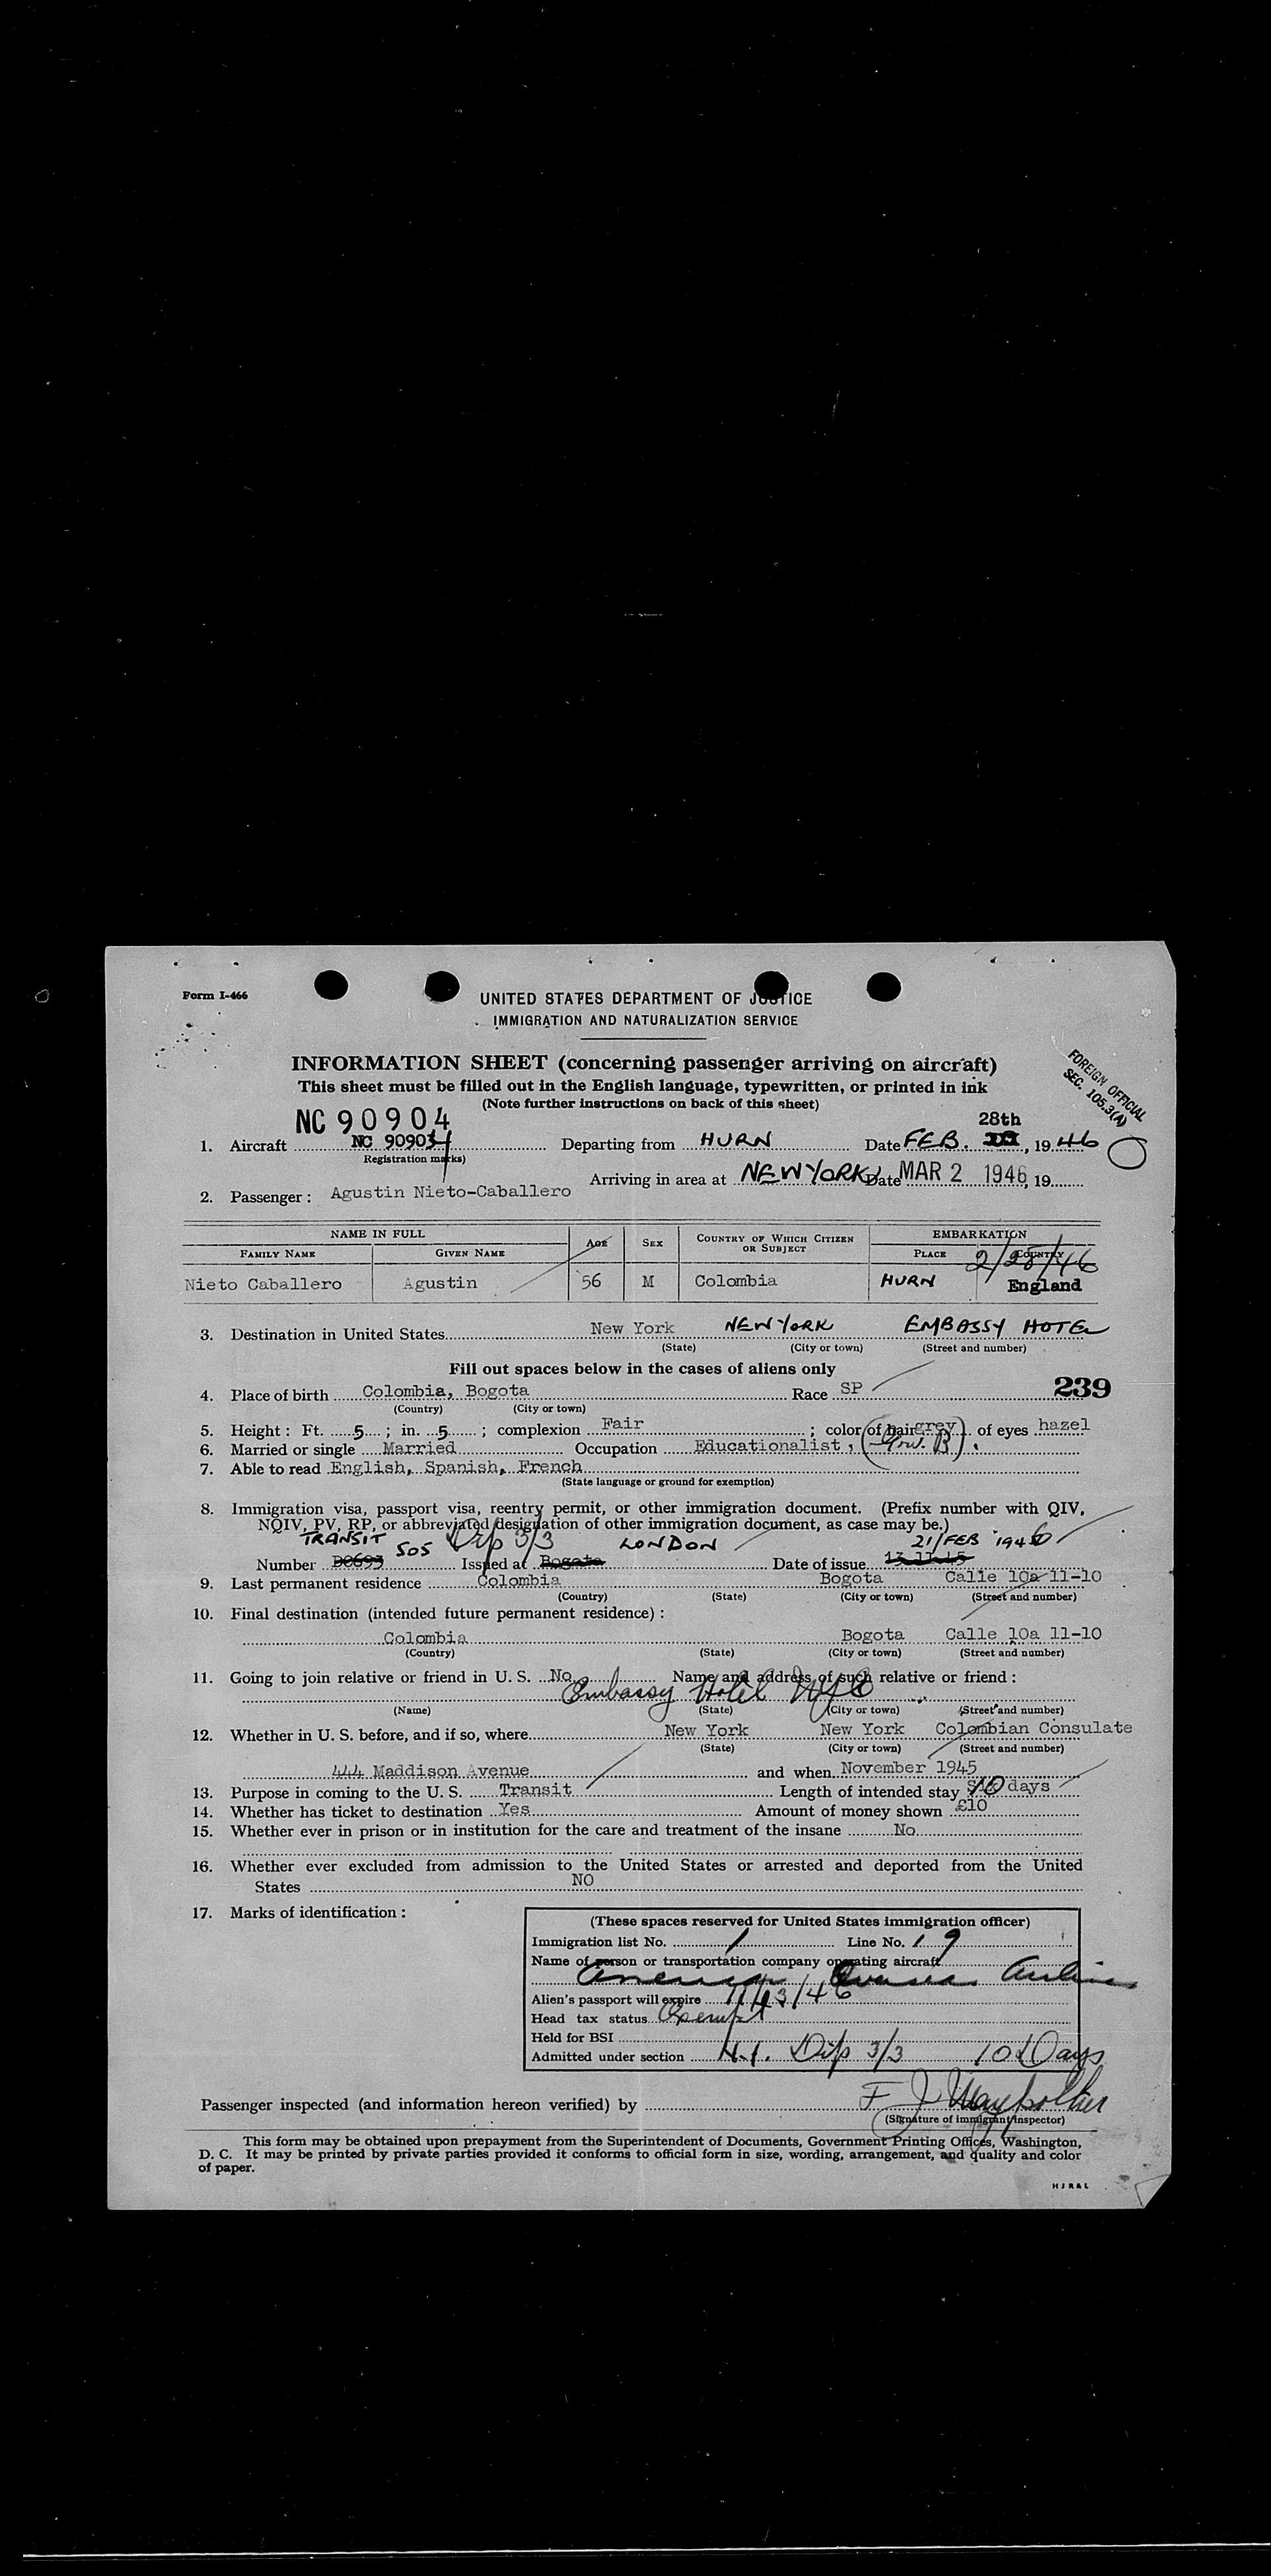 Form I-466
UNITED STATES DEPARTMENT OF JUSTICE
IMMIGRATION AND NATURALIZATION SERVICE
INFORMATION SHEET (concerning passenger arriving on aircraft)
This sheet must be filled out in the English language, typewritten, or printed in ink
(Note further instructions on back of this sheet)
FOREIGN OFFICIAL
SEC. 105.3(A)
NC 90904
28th
1. Aircraft NC 90904 Departing from HURN Date FEB. , 1946
(Registration marks)
Arriving in area at NEW YORK Date MAR 2 1946, 19
2. Passenger : Agustin Nieto-Caballero
NAME IN FULL AGE SEX COUNTRY OF WHICH CITIZEN OR SUBJECT EMBARKATION
FAMILY NAME GIVEN NAME PLACE COUNTRY
2/28/46
Nieto Caballero Agustin 56 M Colombia HURN England
3. Destination in United States New York NEW YORK EMBASSY HOTEL
(State) (City or town) (Street and number)
Fill out spaces below in the cases of aliens only
239
4. Place of birth Colombia, Bogota Race SP
(Country) (City or town)
5. Height : Ft. 5 ; in. 5 ; complexion Fair ; color of hair grey of eyes hazel
6. Married or single Married Occupation Educationalist,
7. Able to read English, Spanish, French
(State language or ground for exemption)
8. Immigration visa, passport visa, reentry permit, or other immigration document. (Prefix number with QIV,
NQIV, PV, RP, or abbreviated designation of other immigration document, as case may be.)
TRANSIT Dip 3/3 LONDON 21/FEB 1946
Number D0693 505 Issued at Bogota Date of issue 13-11-45
9. Last permanent residence Colombia Bogota Calle 10a 11-10
(Country) (State) (City or town) (Street and number)
10. Final destination (intended future permanent residence) :
Colombia Bogota Calle 10a 11-10
(Country) (State) (City or town) (Street and number)
11. Going to join relative or friend in U. S. No Name and address of such relative or friend :
Embassy Hotel NYC
(Name) (State) (City or town) (Street and number)
12. Whether in U. S. before, and if so, where New York New York Colombian Consulate
(State) (City or town) (Street and number)
444 Maddison Avenue and when November 1945
13. Purpose in coming to the U. S. Transit Length of intended stay 10 days
14. Whether has ticket to destination Yes Amount of money shown £10
15. Whether ever in prison or in institution for the care and treatment of the insane No
16. Whether ever excluded from admission to the United States or arrested and deported from the United
States NO
17. Marks of identification :
(These spaces reserved for United States immigration officer)
Immigration list No. 1 Line No. 19
Name of person or transportation company operating aircraft
American Overseas Airlines
Alien's passport will expire 11/13/46
Head tax status Exempt
Held for BSI
Admitted under section 4.1. Dip 3/3 10 Days
Passenger inspected (and information hereon verified) by F J
(Signature of immigrant inspector)
This form may be obtained upon prepayment from the Superintendent of Documents, Government Printing Offices, Washington,
D. C. It may be printed by private parties provided it conforms to official form in size, wording, arrangement, and quality and color
of paper.
H J R & L